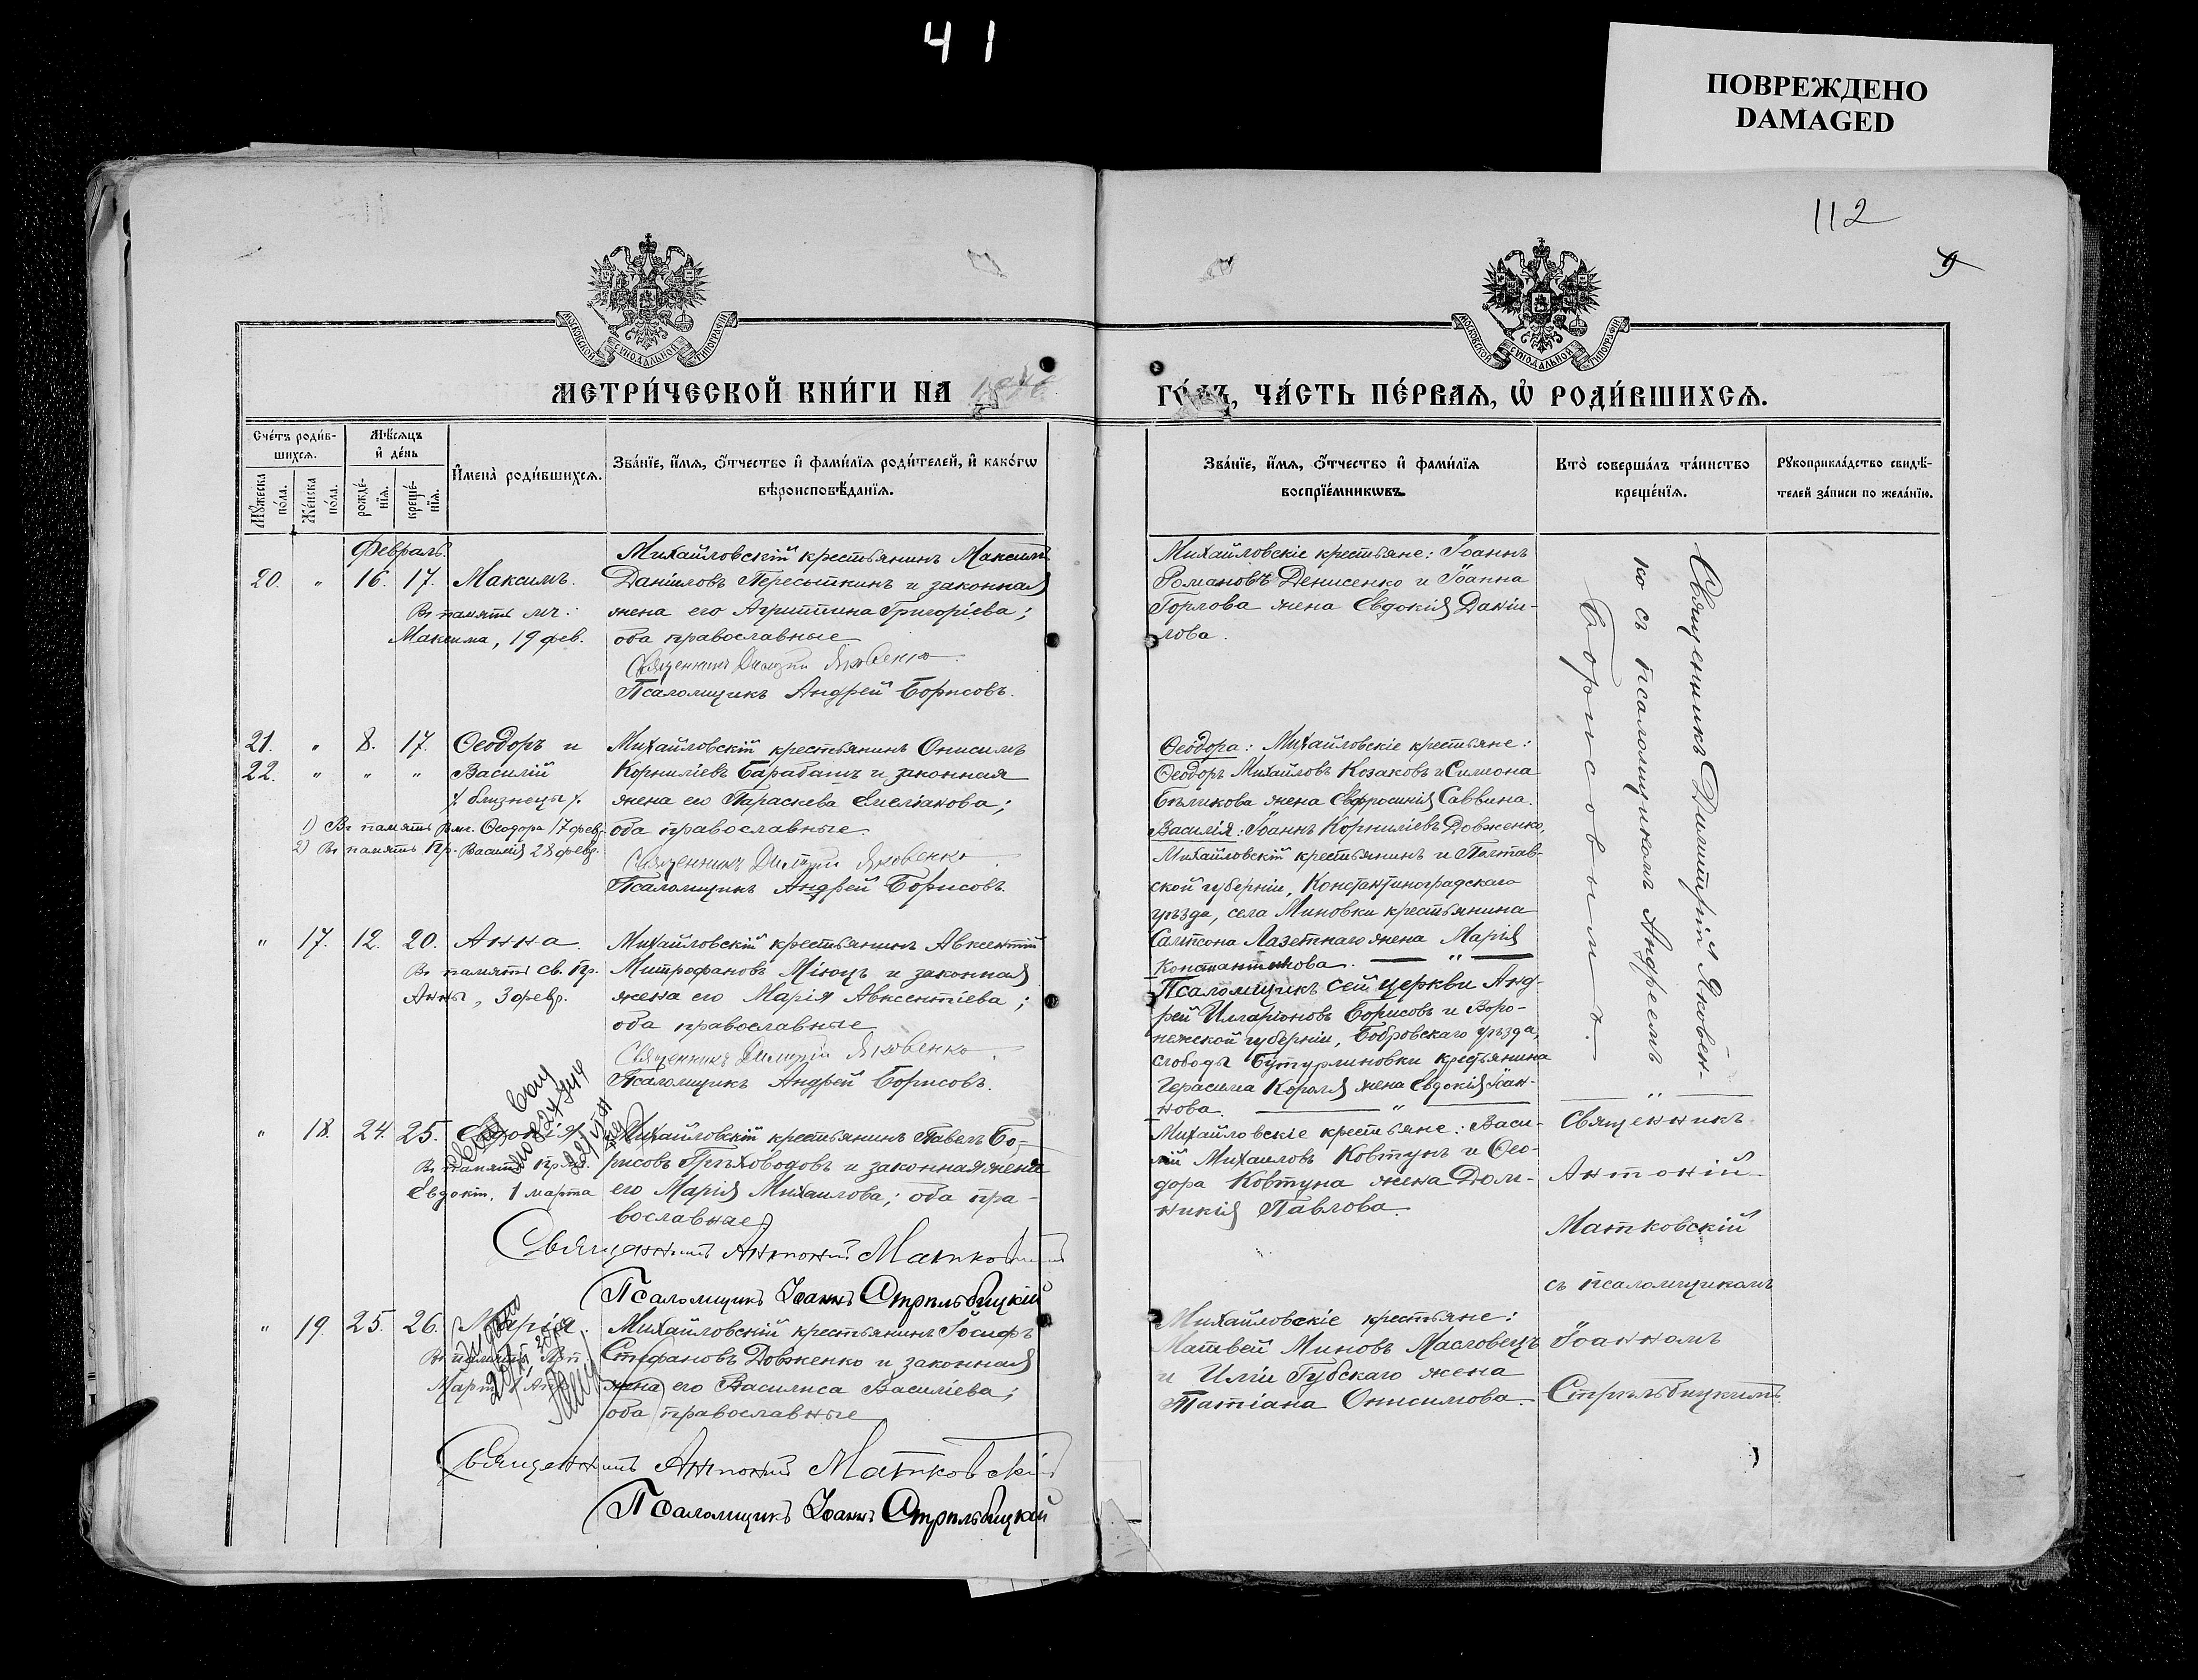 41
ПОВРЕЖДЕНО
DAMAGED
112
9
МОСКОВСКОЙ СѴНОДАЛЬНОЙ ТИПОГРАФІИ
МОСКОВСКОЙ СѴНОДАЛЬНОЙ ТИПОГРАФІИ
МЕТРИ́ЧЕСКОЙ КНИ́ГИ НА
ГО́ДЪ, ЧА́СТЬ ПЕ́РВАЯ, Ѽ РОДИ́ВШИХСЯ.
Сче́тъ роди́в-
шихся.
Мѣ́сяцъ
и҆ де́нь
Мꙋ́жеска по́ла.
Же́нска по́ла.
рожде́-
нїя.
креще́-
нїя.
И҆мена̀ роди́вшихся.
Зва́нїе, и҆́мя, ѻ҆́тчество и҆ фами́лїя роди́телей, и҆ како́гѡ
вѣроисповѣ́данїя.
Зва́нїе, и҆́мя, ѻ҆́тчество и҆ фами́лїя
воспрїе́мникѡвъ.
Кто̀ соверша́лъ та́инство
креще́нїя.
Рꙋкоприкла́дство свидѣ́-
телей за́писи по жела́нїю.
Февраль.
20. " 16. 17. Максимъ.
Въ память мч.
Максима, 19 фев.
Михайловскій крестьянинъ Максимъ
Даніиловъ Пересыпкинъ и законная
жена его Агриппина Григоріева;
оба православные
Священникъ Димитрій Яковенко.
Псаломщикъ Андрей Борисовъ.
Михайловскіе крестьяне: Іоаннъ
Романовъ Денисенко и Іоанна
Горлова жена Евдокія Даніи-
лова.
Священникъ Димитрій Яковен-
ко съ псаломщикомъ Андреемъ
Борисовымъ.
21. " 8. 17. Ѳеодоръ и
22. " " " Василій
/. близнецы /.
1) Въ память вмч. Ѳеодора 17 февр.
2) Въ память Пр. Василія 28 февр.
Михайловскій крестьянинъ Онисимъ
Корниліевъ Барабашъ и законная
жена его Параскева Емеліанова;
оба православные
Священникъ Димитрій Яковенко.
Псаломщикъ Андрей Борисовъ.
Ѳеодора: Михайловскіе крестьяне:
Ѳеодоръ Михайловъ Козаковъ и Симеона
Бѣликова жена Евфросинія Саввина.
Василія: Іоаннъ Корниліевъ Довженко,
Михайловскій крестьянинъ и Полтав-
ской губерніи, Константиноградскаго
уѣзда, села Миновки крестьянина
Сампсона Лазетнаго жена Марія
Константинова. — " —
" 17. 12. 20. Анна.
Въ память св. Пр.
Анны, 3 февр.
Михайловскій крестьянинъ Авксентій
Митрофановъ Міюцъ и законная
жена его Марія Авксентіева;
оба православные
Священникъ Димитрій Яковенко.
Псаломщикъ Андрей Борисовъ.
Псаломщикъ сей церкви Анд-
рей Иларіоновъ Борисовъ и Воро-
нежской губерніи, Бобровскаго уѣзда,
слободы Бутурлиновки крестьянина
Герасима Короля жена Евдокія Іоан-
нова. — " —
" 18. 24. 25.
Въ память Пр.
Евдокіи, 1 марта
Михайловскій крестьянинъ Павелъ Бо-
рисовъ Грѣховодовъ и законная жена
его Марія Михаилова; оба пра-
вославные
Священникъ Антоній Матковскій
Псаломщикъ Іоаннъ Стрѣльбицкій
Михайловскіе крестьяне: Васи-
лій Михаиловъ Ковтунъ и Ѳео-
дора Ковтуна жена Дом-
никія Павлова.
Священникъ
Антоній
Матковскій
съ псаломщикомъ
Іоанномъ
Стрѣльбицкимъ.
" 19. 25. 26. Марія.
Михайловскій крестьянинъ Іосифъ
Стефановъ Довженко и законная
жена его Василиса Василіева;
оба православные
Священникъ Антоній Матковскій
Псаломщикъ Іоаннъ Стрѣльбицкій
Михайловскіе крестьяне:
Матвей Миновъ Масловецъ
и Иліи Губскаго жена
Татіана Онисимова.